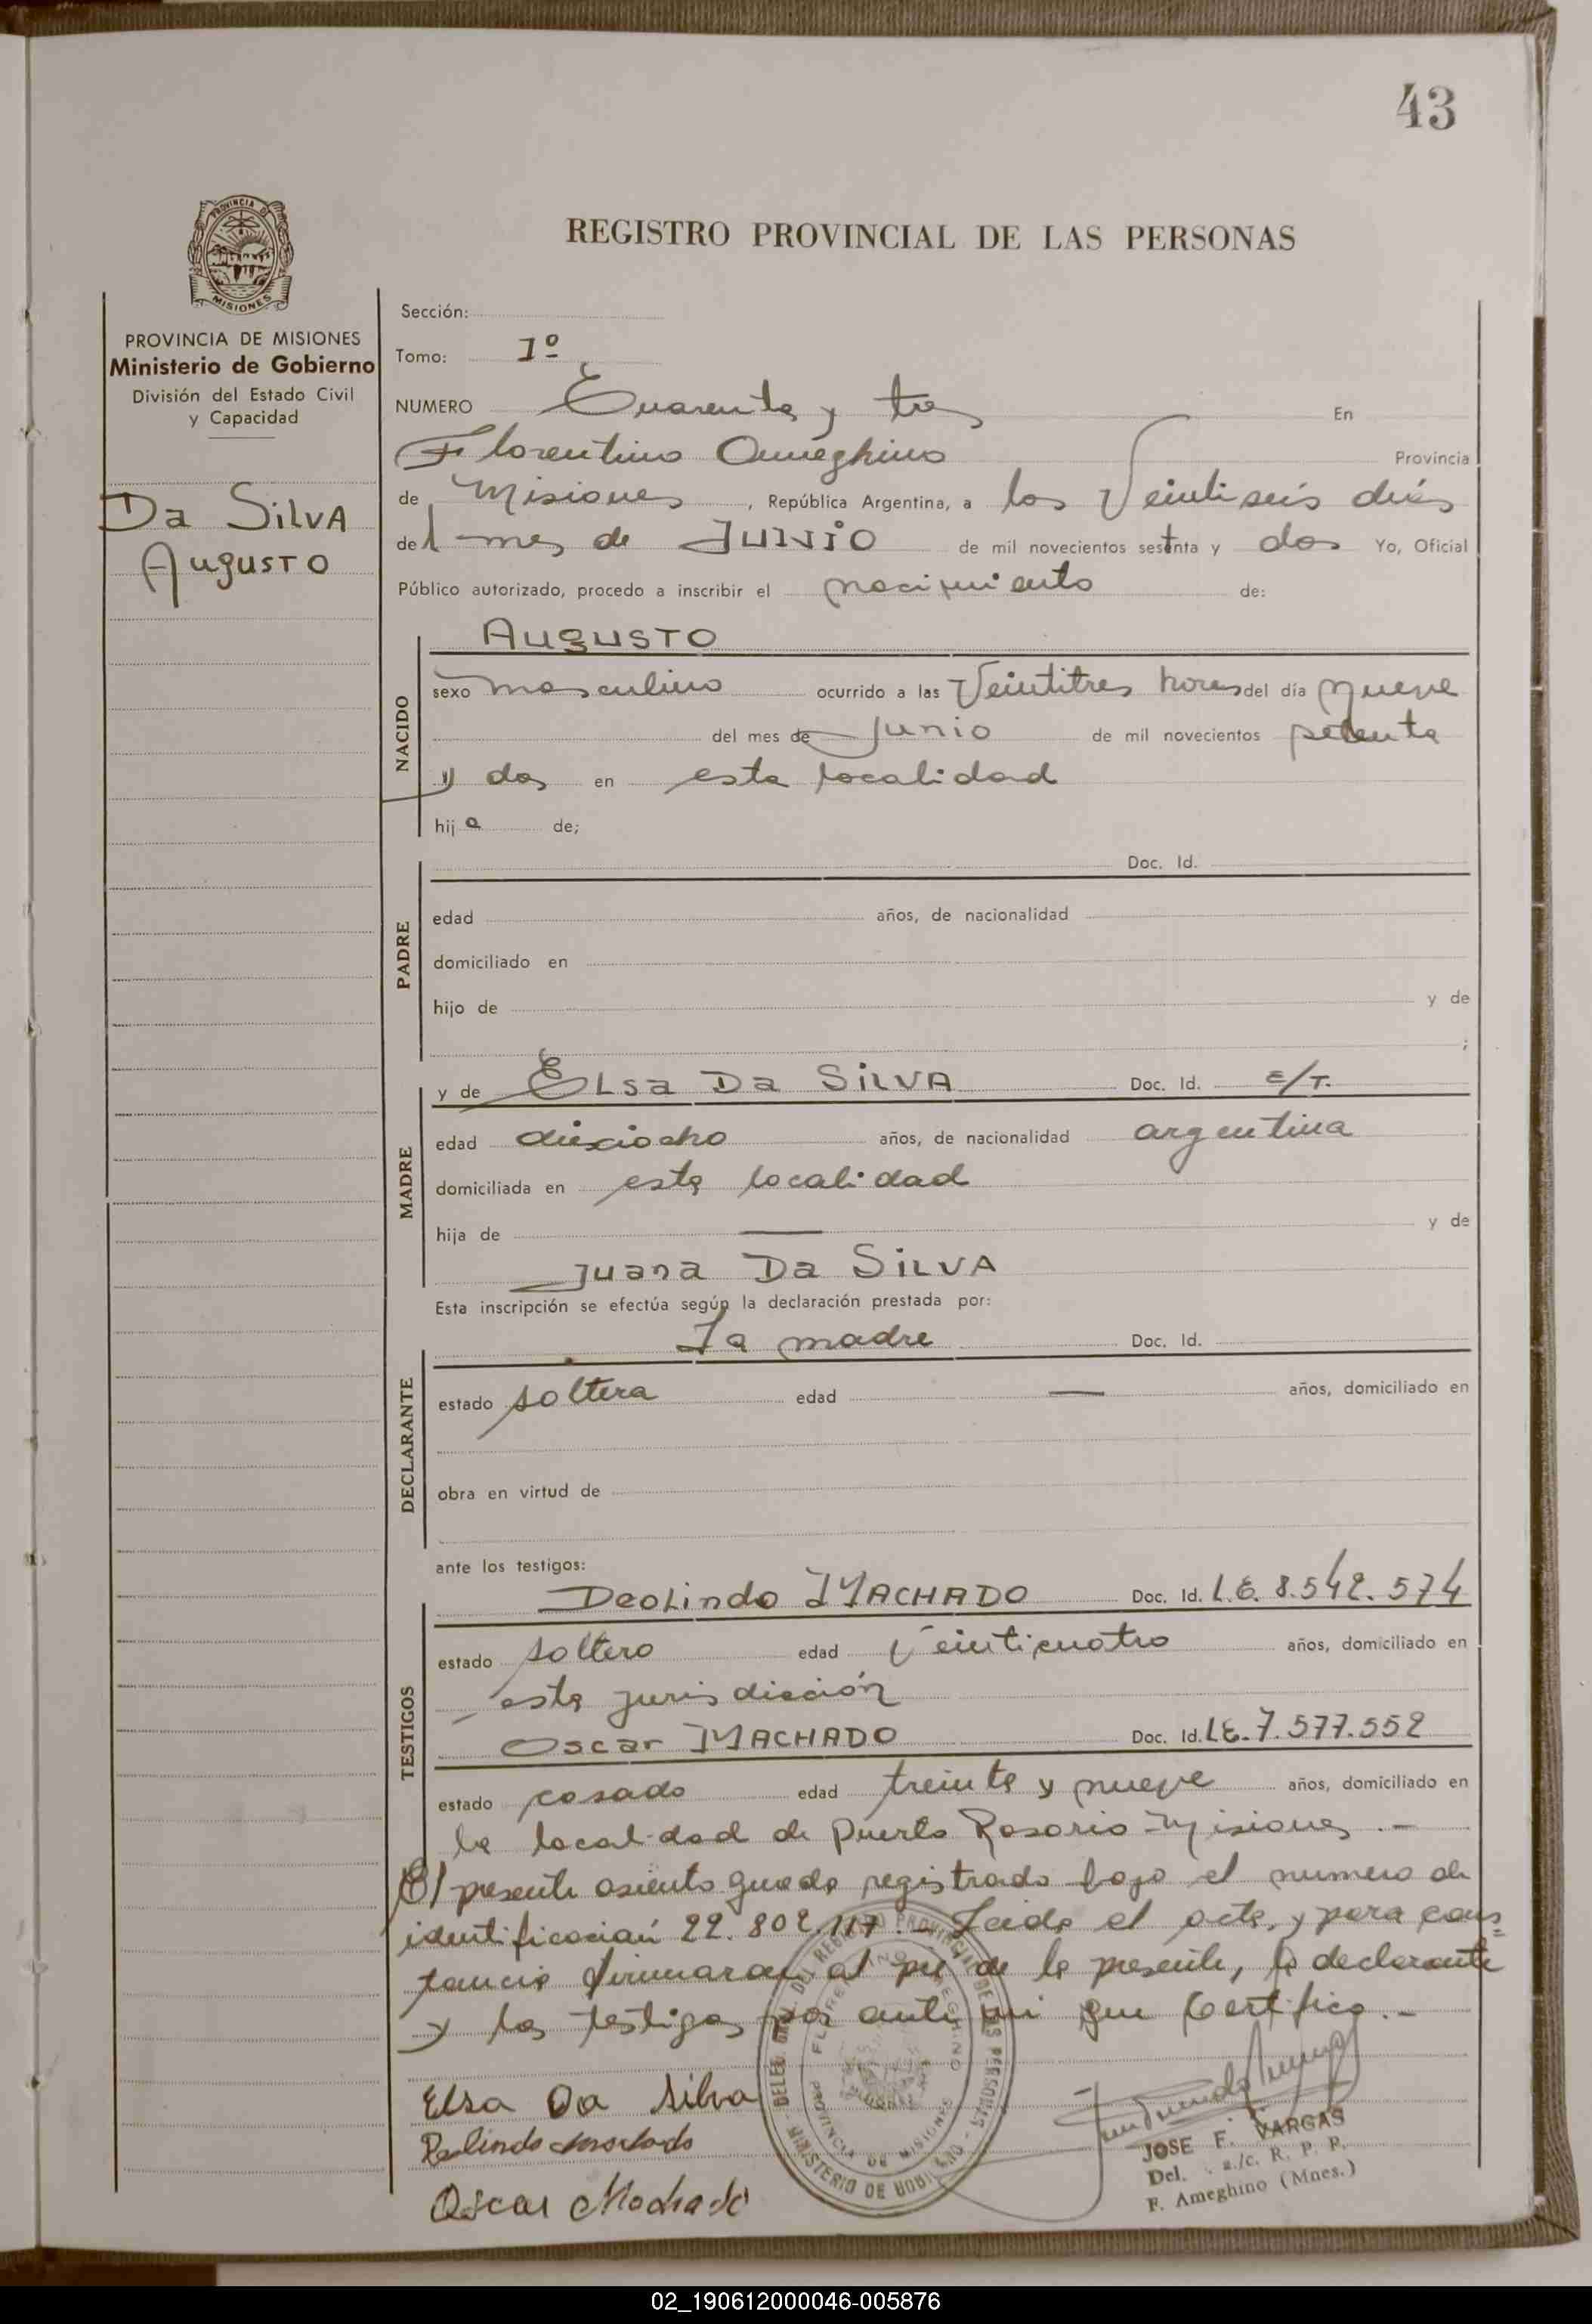 43
PROVINCIA DE
MISIONES
REGISTRO PROVINCIAL DE LAS PERSONAS
PROVINCIA DE MISIONES
Ministerio de Gobierno
División del Estado Civil
y Capacidad
Da SILVA
AUGUSTO
Sección:
Tomo: 1º
NUMERO Cuarenta y tres En
Florentino Ameghino Provincia
de Misiones, República Argentina, a los Veintiseis dias
del mes de JUNIO de mil novecientos setenta y dos Yo, Oficial
Público autorizado, procedo a inscribir el nacimiento de:
NACIDO
AUGUSTO
sexo masculino ocurrido a las Veintitres horas del día nueve
del mes de Junio de mil novecientos setenta
y dos en esta localidad
hijo de;
PADRE
Doc. Id.
edad años, de nacionalidad
domiciliado en
hijo de y de
;
MADRE
y de ELsa Da SILVA Doc. Id. E/T.
edad dieciocho años, de nacionalidad argentina
domiciliada en esta localidad
hija de — y de
Juana Da SILVA
Esta inscripción se efectúa según la declaración prestada por:
DECLARANTE
La madre Doc. Id.
estado soltera edad — años, domiciliado en
obra en virtud de
ante los testigos:
TESTIGOS
DeoLindo MACHADO Doc. Id. L.E. 8.542.574
estado soltero edad Veinticuatro años, domiciliado en
esta jurisdicción
Oscar MACHADO Doc. Id. LE. 7.577.552
estado casado edad treinta y nueve años, domiciliado en
la localidad de Puerto Rosario Misiones.-
El presente asiento queda registrado bajo el numero de
identificacián 22.802.117.- Leida el acta, y para cons=
tancia firmaran al pié de la presente, la declarante
y los testigos por ante mi que Certifico.-
Elsa Da Silva
Deolindo Machado
Oscar Machado
DELEG. GRAL. DEL REGISTRO PROVINCIAL DE LAS PERSONAS - MINISTERIO DE GOBIERNO
FLORENTINO AMEGHINO
PROVINCIA DE MISIONES
JOSE F. VARGAS
Del. a/c. R. P. P.
F. Ameghino (Mnes.)
02_190612000046-005876